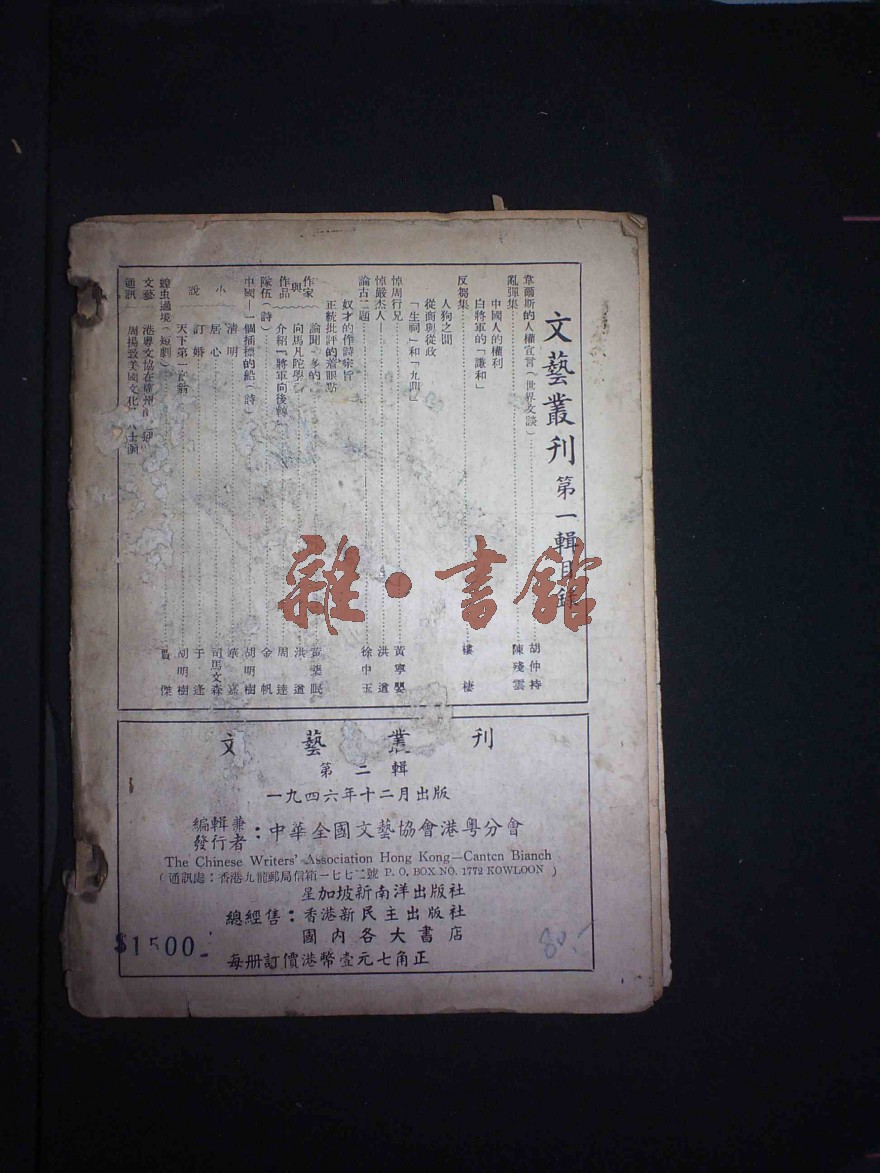 文藝叢刊 第一輯目錄
韋爾斯的人權宣言（世界文談） 胡仲持
亂彈集 陳殘雲
中國人的權利
白將軍的「謙和」
反芻集 樓棲
人狗之間
從商與從政
「生祠」和「九四」
悼周行兄 黃寧嬰
悼嚴杰人 洪遒
論古二題 徐中玉
奴才的作詩宗旨
正統批評的着眼點
作家與作品
論聞一多的 黃葯眠
向馬凡陀學 洪遒
介紹「將軍向後轉」 周達
隊伍（詩） 金帆
中國—一個插標的船（詩） 胡明樹
小說
清明 華嘉
居心 司馬文森
訂婚 于逢
天下第一 翁 胡明樹
蝗虫過境（短劇） 傑
文藝通訊
港粵文協在廣州
周揚致美國文化 士
文藝叢刊
第二輯
一九四六年十二月出版
編輯兼發行者：中華全國文藝協會港粵分會
The Chinese Writers' Association Hong Kong—Canten Bianch
（通訊處：香港九龍郵局信箱一七七二號 P. O. BOX NO. 1772 KOWLOON ）
星加坡新南洋出版社
總經售：香港新民主出版社
國內各大書店
每册訂價港幣壹元七角正
$1500-
80.-
雜·書館